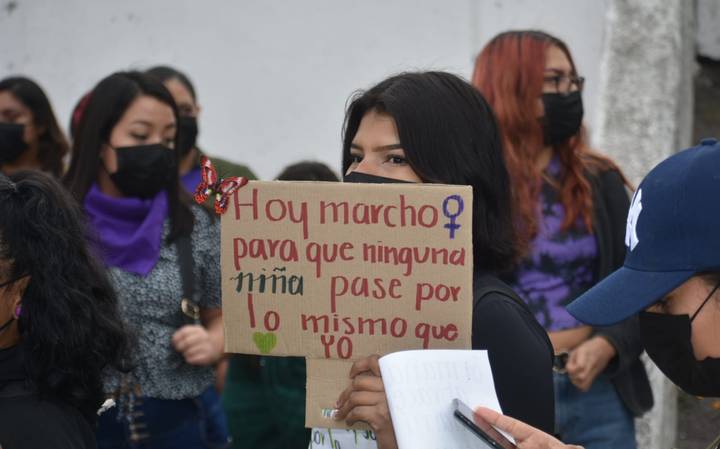 Hoy marcho
para que ninguna
niña pase por
lo mismo que
YO
NY